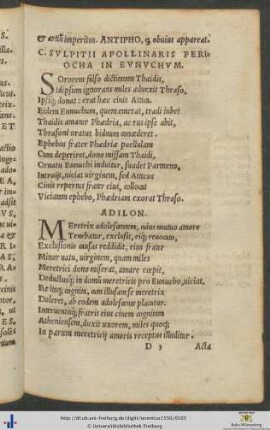 & actū imperitus. ANTIPHO, q̄ obuius appareat.
C. SVLPITII APOLLINARIS PERI-
OCHA IN EVNVCHVM.
SOrorem falso dictitatam Thaidis,
Id ipsum ignorans miles aduexit Thraso,
Ipsiq; donat: erat hæc ciuis Attica.
Eidem Eunuchum, quem emerat, tradi iubet
Thaidis amator Phædria, ac rus ipse abit,
Thrasoni oratus biduum concederet.
Ephebus frater Phædria puellulam
Cum deperiret, dono missam Thaidi,
Ornatu Eunuchi induitur, suadet Parmeno,
Introijt, uitiat uirginem, sed Atticus
Ciuis repertus frater eius, collocat
Vitiatam ephebo, Phædriam exorat Thraso.
ADILON.
MEretrix adolescentem, cuius mutuo amore
Tenebatur, exclusit, eiq; reuocato,
Exclusionis causas reddidit, eius frater
Minor natu, uirginem, quam miles
Meretrici dono miserat, amare cœpit,
Deductusq; in domū meretricis pro Eunucho, uitiat.
Re itaq; cognita, cum illusam se meretrix
Doleret, ab eodem adolescente placatur.
Interuentuq; fratris eius ciuem cognitam
Atheniensem, duxit uxorem, miles quoq;
In partem meretricij amoris receptus illuditur.
D 3 Acta
http://dl.ub.uni-freiburg.de/diglit/terentius1550/0105
© Universitätsbibliothek Freiburg